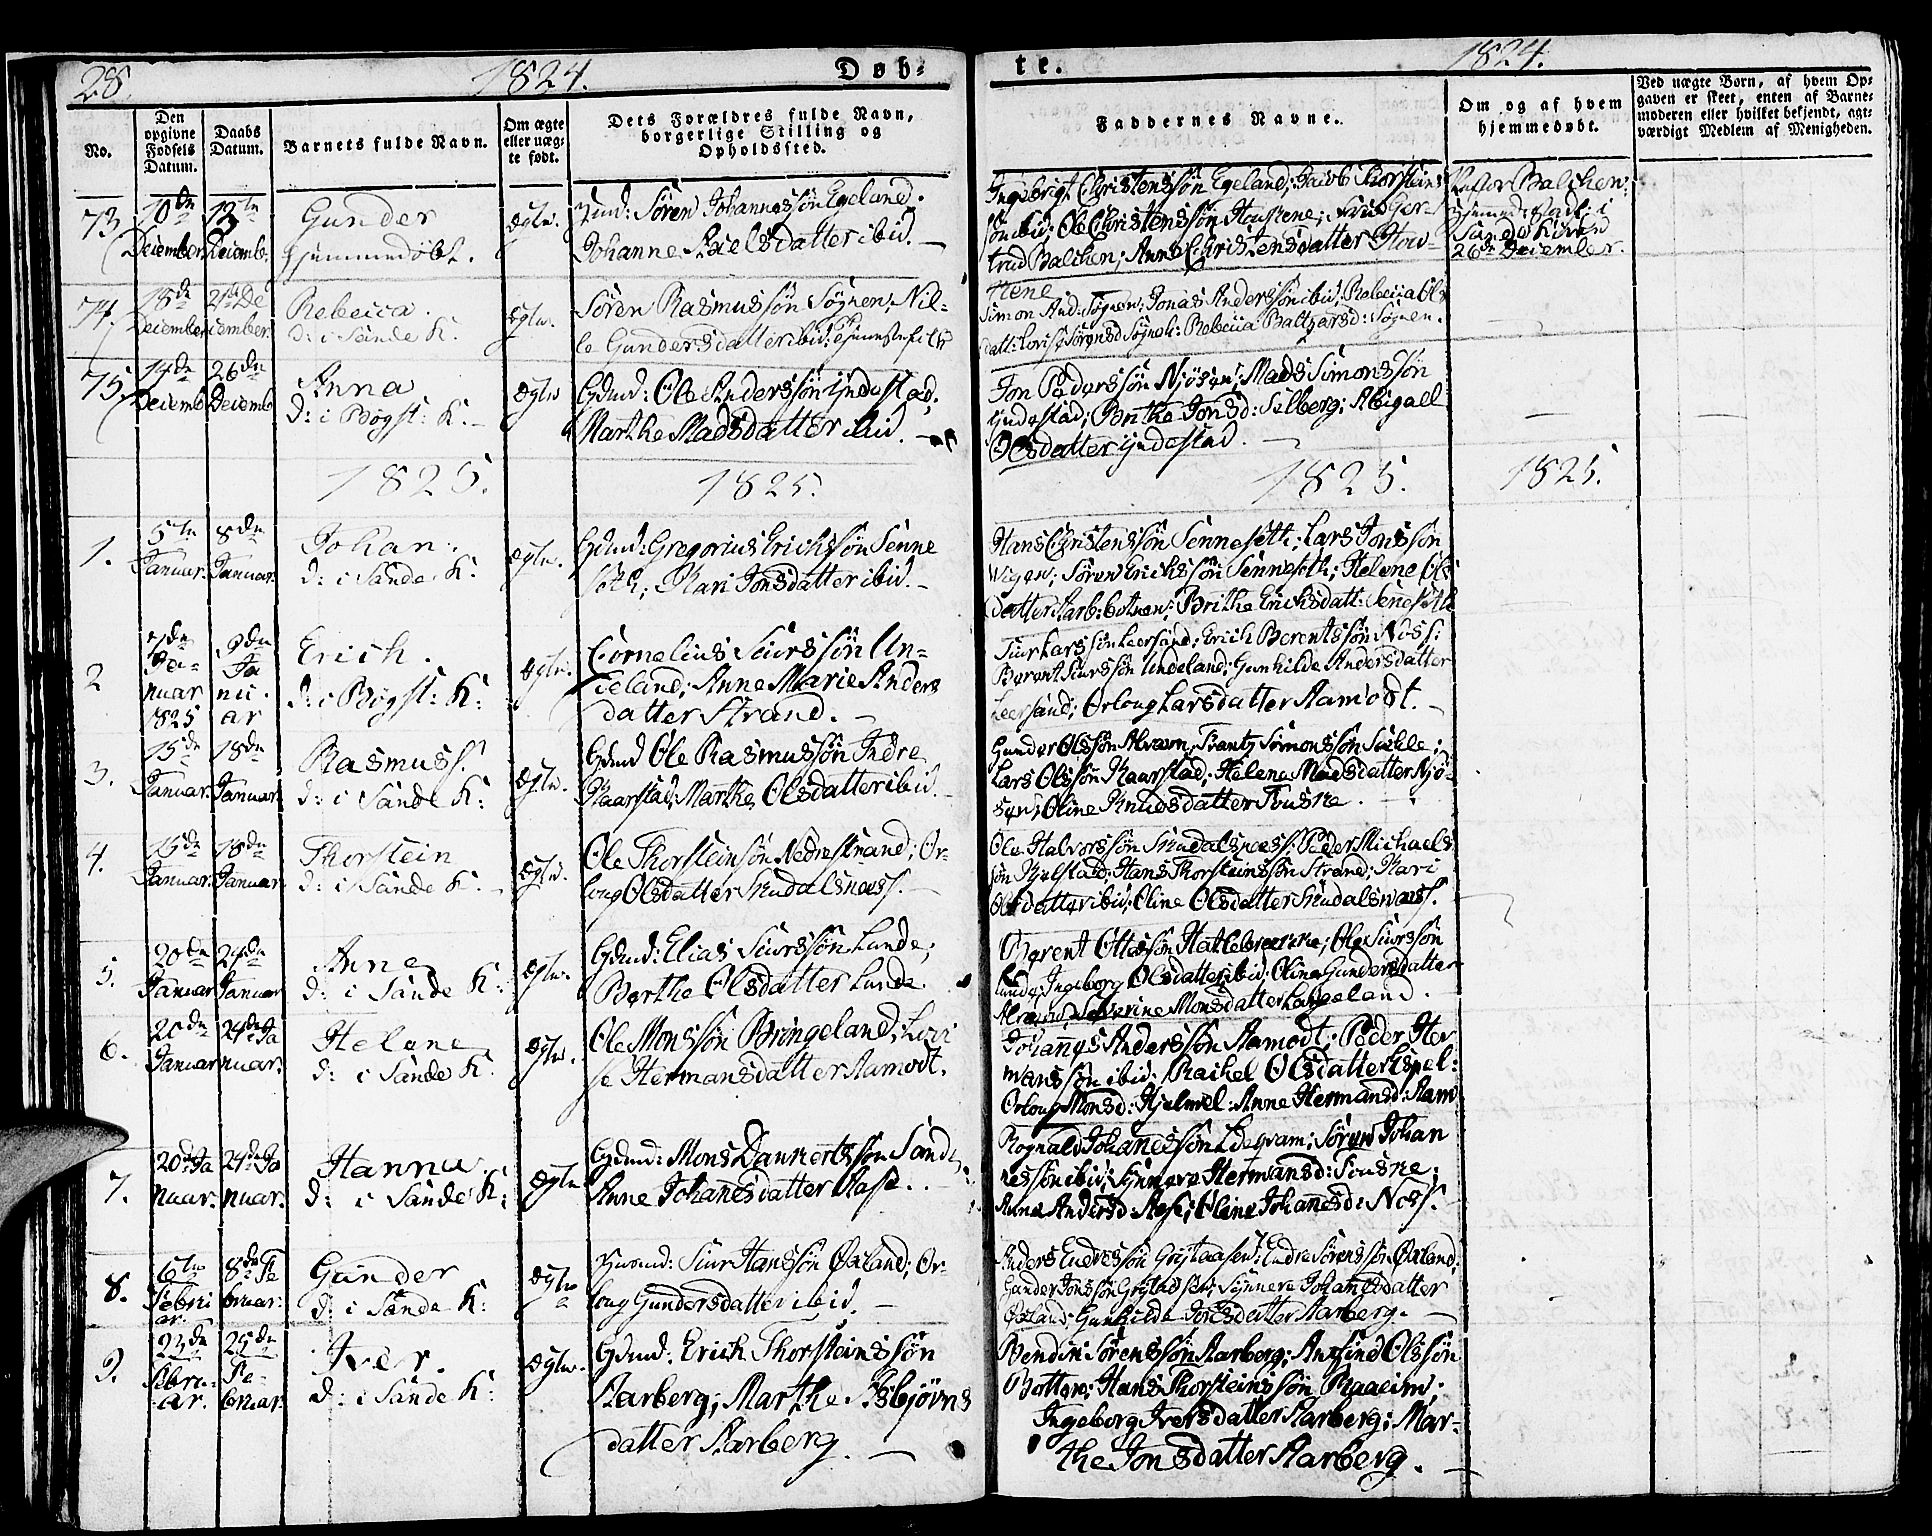 28. 1824. Døb-
te. 1824.
No.
Den opgivne Fødsels Datum.
Daabs Datum.
Barnets fulde Navn.
Om ægte eller uægte født.
Dets Forældres fulde Navn, borgerlige Stilling og Opholdssted.
Faddernes Navne.
Om og af hvem hjemmedøbt.
Ved uægte Børn, af hvem Opgaven er skeet, enten af Barnemoderen eller hvilket bekjendt, agtværdigt Medlem af Menigheden.
73. 10de December
Gunder
Hjemmedöbt.
Ægte.
Sören Johannessön Egeland.
Johanne Axelsdatter ibid.
Ingebrigt Christenssön Egeland; Jacob Thorstein-
sön ibid; Ole Christenssön
trud Balchen; Anne Christensdatter
Pastor Balchen
26de December.
74. 18de December
Rebecca.
d: i Sande K.
Ægte.
Sören Rasmussön Sögnen; Nil-
le Gundersdatter ibid:
Simon And: Sögnen; Jonas Anderssön ibid; Rebecca Ols
datt: Lovise Sörensd Sögnen: Rebecca Baltzarsd: Sögnen.
75. 14de Decemb 26de Decemb
Anna
d: i Bögst: K.
Ægte
Gdmd: Ole Anderssön Yndestad;
Marthe Madsdatter ibid.
Jon Pedersön Njösen; Mads Simonssön
Yndestad; Brithe Jonsd: Selberg; Abigael
Olsdatter Yndestad.
1825. 1825. 1825. 1825.
1. 5te Januar. 8de Januar.
Johan.
d: i Sande K.
Ægte.
Gdmd: Gregorius Erichssön Senne
seth; Kari Jonsdatter ibid.
Hans Christenssön Senneseth; Lars Jonssön
Vigen; Sören Erichssön Senneseth; Helene Ols
datter Aarbebotnen; Brithe Erichsdatt: Senneseth
2 7de Januar 1825 9de Januar
Erich.
d: i Bögst: K:
Ægte.
Cornelius Siurssön Un-
deland; Anne Marie Anders
datter Strand.
Siur Larssön Leersand; Erich Berentssön Ness:
Berent Siurssön Undeland; Gunhilde Andersdatter
Leersand; Orloug Larsdatter Aamodt.
3. 15de Januar. 18de Januar
Rasmus.
d: i Sande K:
Ægte.
Gdmd Ole Rasmussön Indre
Kaarstad; Marthe Olsdatter ibid.
Gunder Olssön Alværen, Frantz Simonssön
Lars Olssön Kaarstad; Helene Madsdatter Njö-
sen; Oline Knudsdatter
4. 15de Januar. 18de Januar.
Thorstein
d: i Sande K.
Ægte.
Ole Thorsteinsön Nedrestrand; Or-
loug Olsdatter Skudalsnæss.
Ole Halvorssön Skudalsnæss: Peder Michaels
sön Kjelstad; Hans Thorsteinssön Strand; Kari
Olsdatter ibid; Oline Olsdatter Skudalsnæss.
5. 20de Januar 24de Januar
Anne
d: i Sande K:
Ægte.
Gdmd: Elias Siurssön Lunde;
Berthe Olsdatter Lunde.
Berent Ottessön Hatlebrække; Ole Siurssön
Lunde, Ingeborg Olsdatter ibid. Oline Gundersdatter
Severine Monsdatter Langeland.
6. 20de Januar 24de Januar.
Helene
d: i Sande K.
Ægte.
Ole Monssön Bringeland; Lovi
se Hermansdatter Aamodt.
Johanes Anderssön Aamodt; Peder Her
manssön ibid. Rachel Olsdatter Espel:
Orloug Monsd: Hjelmel: Anne Hermansd: Aam
7. 20de Januar. 24de Januar.
Hanna.
d: i Sande K:
Ægte
Gdmd: Mons Dankertssön Sande;
Anne Johanesdatter Aase.
Rognald Johanessön Lidegram; Sören Johan
nessön ibid; Synneve Hermansd:
Anne Andersd: Aase; Oline Johanesd: Ness.
8. 6te Februar. 8de Februar:
Gunder
d: i Sande K:
Ægte
Siur Hanssön Öxland; Or-
loug Gundersdatter ibid.
Anders Endressön Grytaasen; Endre Sörenssön Öxland;
Gunder Jonssön Grytaasen; Synneve Johanesdatter
Öxland; Gunhilde Jonesdatter Aarberg.
9. 23de Februar. 25de Februar.
Iver.
d: i Sande K:
Ægte.
Gdmd: Erich Thorsteinssön
Aarberg; Marthe Asbjörns
datter Aarberg.
Bendix Sörenssön Aarberg; Anfind Olssön
Botten; Hans Thorsteinssön Raaeim;
Ingeborg Iversdatter Aarberg; Mar-
the Jonsdatter Aarberg.